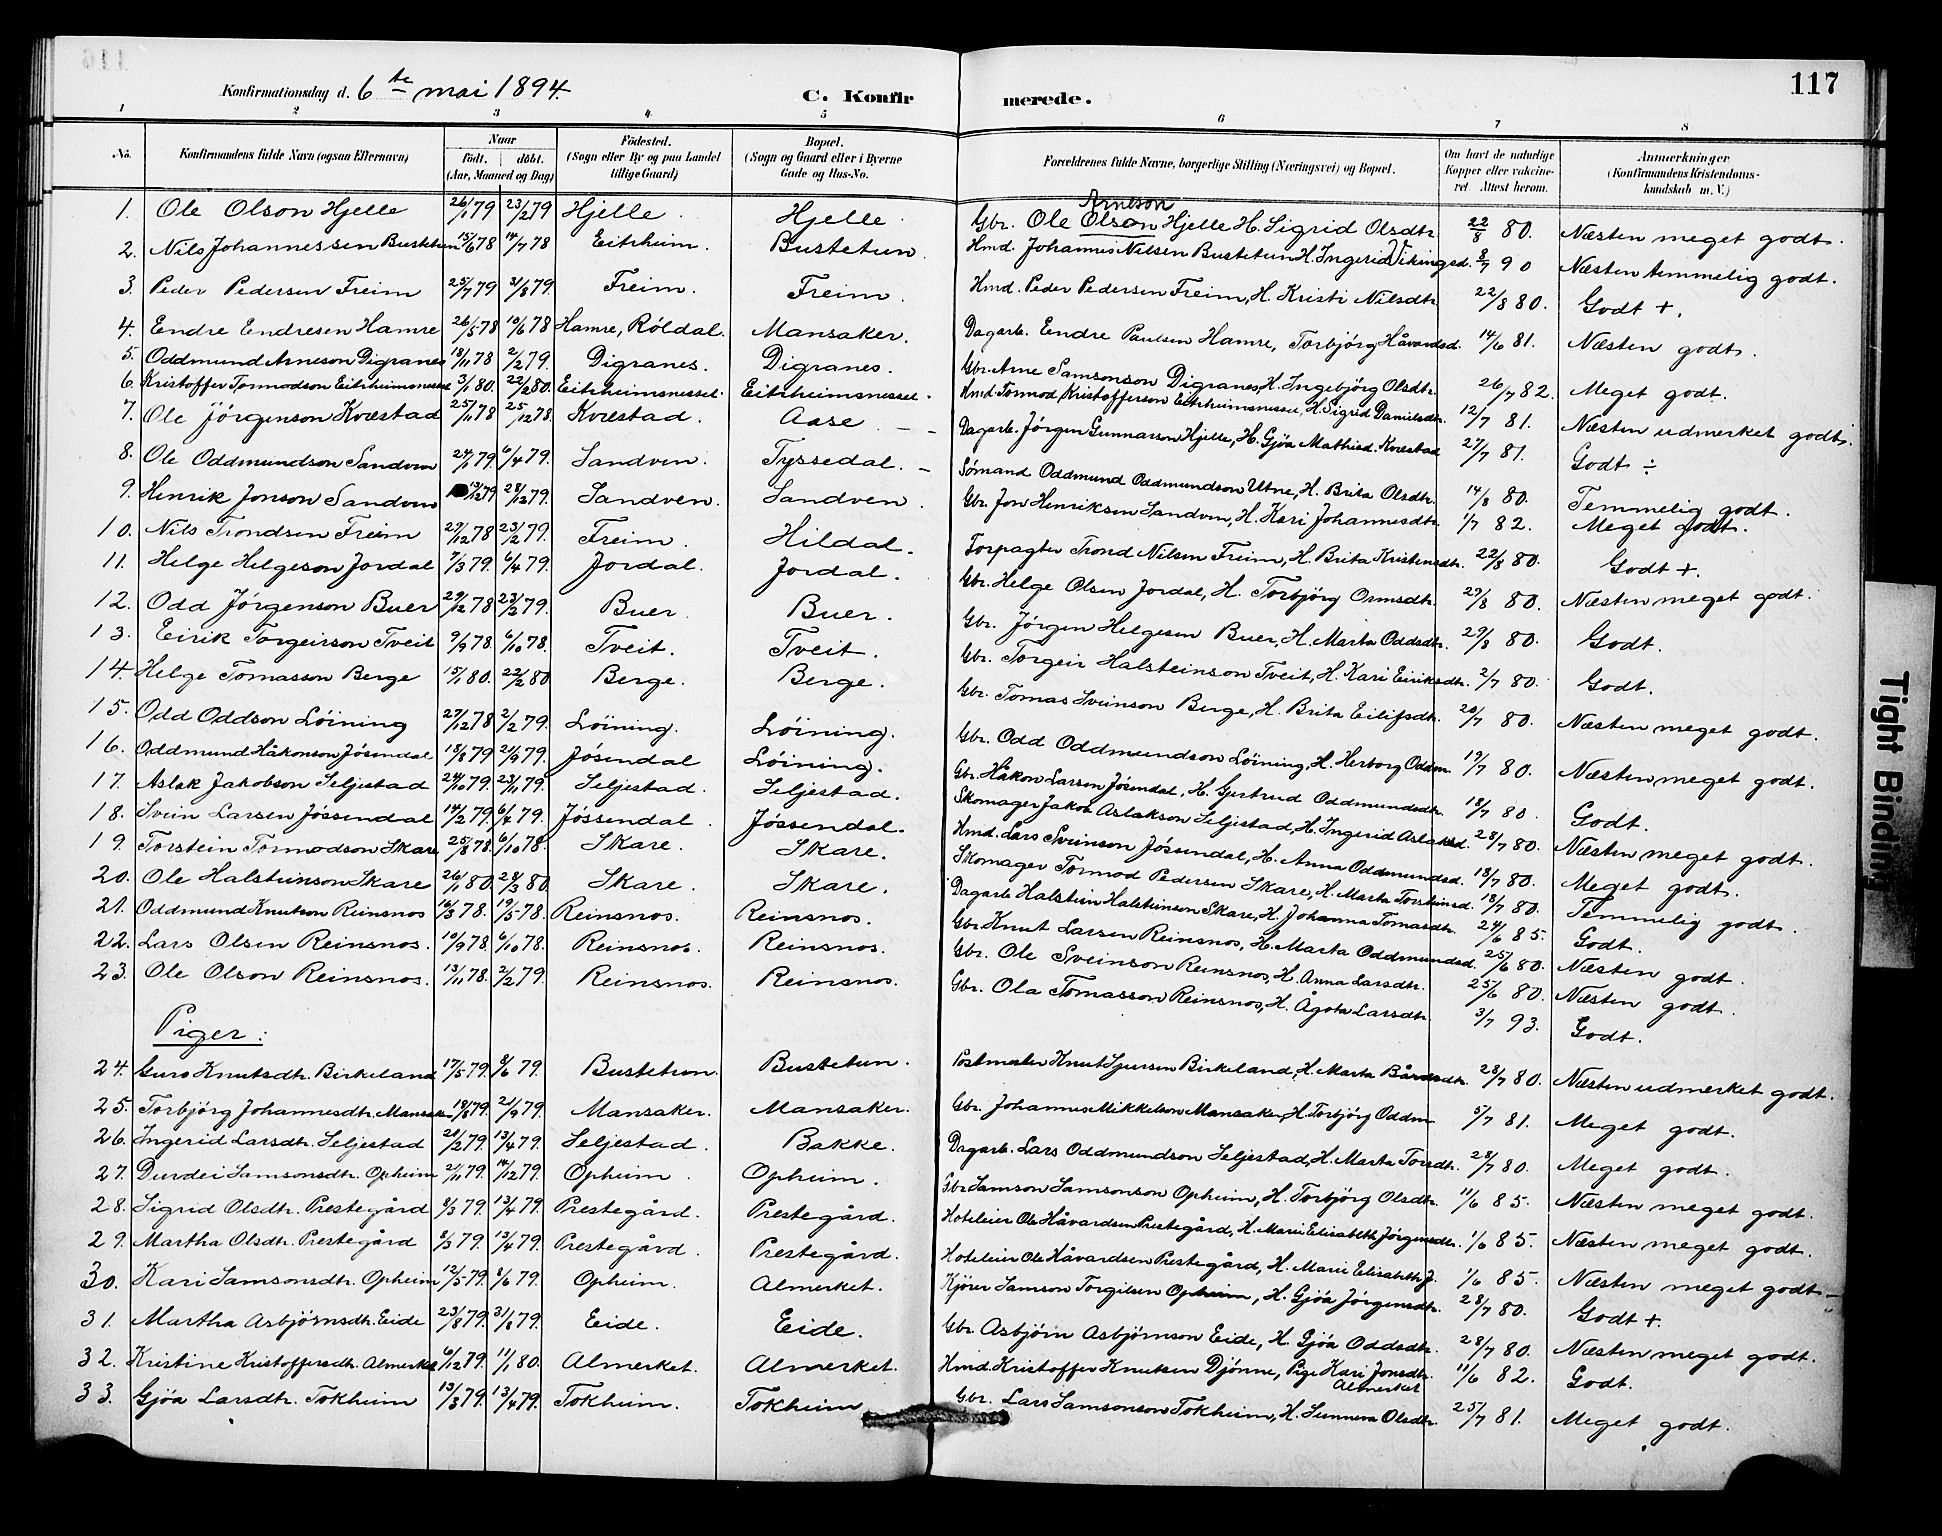 117
Konfirmationsdag d. 6te mai 1894.
C. Konfirmerede.
1 2 3 4 5 6 7 8
No. Konfirmandens fulde Navn (ogsaa Efternavn) Naar født. døbt. (Aar, Maaned og Dag) Fødested. (Sogn eller By og paa Landet tillige Gaard) Bopæl. (Sogn og Gaard eller i Byerne Gade og Hus-No. Forældrenes fulde Navne, borgerlige Stilling (Næringsvei) og Bopæl. Om havt de naturlige Kopper eller vakcineret. Attest herom. Anmærkninger (Konfirmandens Kristendomskundskab m. V.)
1. Ole Olson Hjelle 26/1 79 23/2 79 Hjelle. Hjelle. Gbr. Ole Olson Arneson Hjelle H. Sigrid Olsdtr. 22/8 80. Næsten meget godt.
2. Nils Johannessen Bustetun 15/6 78 14/7 78 Eitrheim. Bustetun. Hmd. Johannes Nilsen Bustetun H. Ingerid Vikingsd. 8/7 90 Næsten temmelig godt.
3. Peder Pedersen Freim 25/7 79 31/8 79. Freim. Freim. Hmd. Peder Pedersen Freim, H. Kristi Nilsdtr. 22/8 80. Godt +.
4. Endre Endresen Hamre 26/5 78 10/6 78 Hamre, Røldal. Mansaker. Dagarb. Endre Paulsen Hamre, Torbjørg Håvardsd. 14/6 81. Næsten godt.
5. Oddmund Arneson Digranes 18/11 78 2/2 79. Digranes. Digranes. Gbr. Arne Samsonson Digranes, H. Ingebjörg Olsdtr. 26/7 82. Meget godt.
6. Kristoffer Tormodson Eitrheimsnesset 3/1 80. 22/2 80. Eitrheimsnesset. Eitrheimsnesset. Hmd. Tormod Kristofferson Eitrheimsnesset, H. Sigrid Danielsdtr. 12/7 81. Næsten udmerket godt.
7. Ole Jörgenson Kvæstad 25/11 78 25/12 78. Kvæstad. Aase. Dagarb. Jörgen Gunnarson Hjelle, H. Gjöa Mathisd. Kvæstad 27/7 81. Godt ÷
8. Ole Oddmundson Sandven 24/1 79. 6/4 79. Sandven. Tyssedal. Sømand Oddmund Oddmundson Utne, H. Brita Olsdtr. 14/8 80. Temmelig godt.
9. Henrik Jonson Sandven 19/12 79 28/12 79. Sandven. Sandven. Gbr. Jon Henriksen Sandven, H. Kari Johannesdtr. 1/7 82. Meget godt.
10. Nils Trondsen Freim 29/12 78 23/2 79. Freim. Hildal. Forpagter Trond Nilsen Freim, H. Brita Kristensdtr. 22/8 80. Godt +.
11. Helge Helgeson Jordal 7/3 79. 6/4 79. Jordal. Jordal. Gbr. Helge Olsen Jordal, H. Torbjörg Ormsdtr. 29/8 80. Næsten meget godt.
12. Odd Jörgenson Buer 29/12 78 23/2 79. Buer. Buer. Gbr. Jörgen Helgesen Buer, H. Marta Oddsdtr. 29/8 80. Godt.
13. Eirik Torgeirson Tveit 9/9 78. 6/10 78. Tveit. Tveit. Gbr. Torgeir Halsteinson Tveit, H. Kari Eiriksdtr. 2/7 80. Godt.
14. Helge Tomasson Berge 15/1 80. 22/2 80 Berge. Berge. Gbr. Tomas Sveinson Berge, H. Brita Eilifsdtr. 20/7 80. Næsten meget godt.
15. Odd Oddson Löining 27/12 78 2/2 79. Löining. Löining. Gbr. Odd Oddmundson Löining, H. Herborg Oddm. 19/7 80. Næsten meget godt.
16. Oddmund Håkonson Jösendal 18/8 79 21/9 79. Jösendal Löining. Gbr. Håkon Larsen Jösendal, H. Gjertrud Oddmundsdtr. 18/7 80. Godt.
17. Aslak Jakobson Seljestad 24/10 79. 23/11 79. Seljestad. Seljestad. Skomager Jakob Aslakson Seljestad, H. Ingerid Aslaksd. 28/7 80. Næsten meget godt.
18. Svein Larsen Jössendal 14/2 79. 6/4 79. Jössendal. Jössendal. Hmd. Lars Sveinson Jössendal, H. Anna Oddmundsd. 18/7 80. Meget godt.
19. Torstein Tormodson Skare 25/8 78. 6/10 78. Skare. Skare. Skomager Tormod Pedersen Skare, H. Marta Torsteinsd. 18/7 80. Temmelig godt.
20. Ole Halsteinson Skare 26/1 80. 28/3 80. Skare. Skare. Dagarb. Halstein Halsteinson Skare, H. Johanna Tomasdtr. 24/6 85. Godt.
21. Oddmund Knutson Reinsnos 16/3 78. 19/5 78. Reinsnos. Reinsnos. Gbr. Knut Larsen Reinsnos, H. Marta Oddmundsd. 25/6 80. Næsten godt.
22. Lars Olsen Reinsnos. 10/9 78. 6/10 78. Reinsnos. Reinsnos. Gbr. Ole Sveinson Reinsnos, H. Anna Larsdtr. 25/6 80. Næsten godt.
23. Ole Olson Reinsnos. 13/11 78. 2/2 79. Reinsnos. Reinsnos. Gbr. Ola Tomasson Reinsnos, H. Ågota Larsdtr. 3/7 93. Godt.
Piger:
24. Guro Knutsdtr. Birkeland 17/5 79. 8/6 79. Bustetun. Bustetun. Postmester Knut Sjursen Birkeland, H. Marta Bårdsdtr. 28/7 80. Næsten udmerket godt.
25. Torbjörg Johannesdtr. Mansaker 18/8 79. 21/9 79. Mansaker. Mansaker. Gbr. Johannes Mikkelson Mansaker, H. Torbjörg Oddm 5/7 81. Meget godt.
26. Ingerid Larsdtr. Seljestad 21/2 79. 13/4 79. Seljestad. Bakke. Dagarb. Lars Oddmundson Seljestad, H. Marta Torsdtr. 28/7 80. Meget godt.
27. Durdei Samsonsdtr. Opheim 2/11 79. 14/12 79. Opheim. Opheim. Gbr. Samson Samsonson Opheim, H. Torbjörg Olsdtr. 11/6 85. Næsten meget godt.
28. Sigrid Olsdtr. Prestegård 8/3 79. 13/4 79. Prestegård. Prestegård. Hoteleier Ole Håvardsen Prestegård, H. Marie Elisabeth Jörgensdtr. 1/6 85. Næsten meget godt.
29. Martha Olsdtr. Prestegård 8/3 79. 13/4 79. Prestegård. Prestegård. Hoteleier Ole Håvardsen Prestegård, H. Marie Elisabeth J. 1/6 85. Næsten meget godt
30. Kari Samsonsdtr. Opheim 12/5 79. 8/6 79. Opheim. Almerket. Kjörer Samson Torgilsen Opheim, H. Gjöa Jörgensdtr. 28/7 80. Godt +.
31. Martha Asbjörnsdtr. Eide 23/8 79. 31/8 79. Eide. Eide. Gbr. Asbjörn Asbjörnson Eide, H. Gjöa Oddsdtr. 28/7 80. Næsten meget godt.
32. Kristine Kristoffersdtr. Almerket 6/12 79. 11/1 80. Almerket. Almerket. Hmd. Kristoffer Knutsen Djönne, Pige Kari Jonsdtr. Almerket 11/6 82. Godt.
33. Gjöa Larsdtr. Tokheim 13/3 79. 13/4 79. Tokheim. Tokheim Gbr. Lars Samsonson Tokheim, H. Sunneva Olsdtr. 25/7 81. Meget godt.
Tight Binding